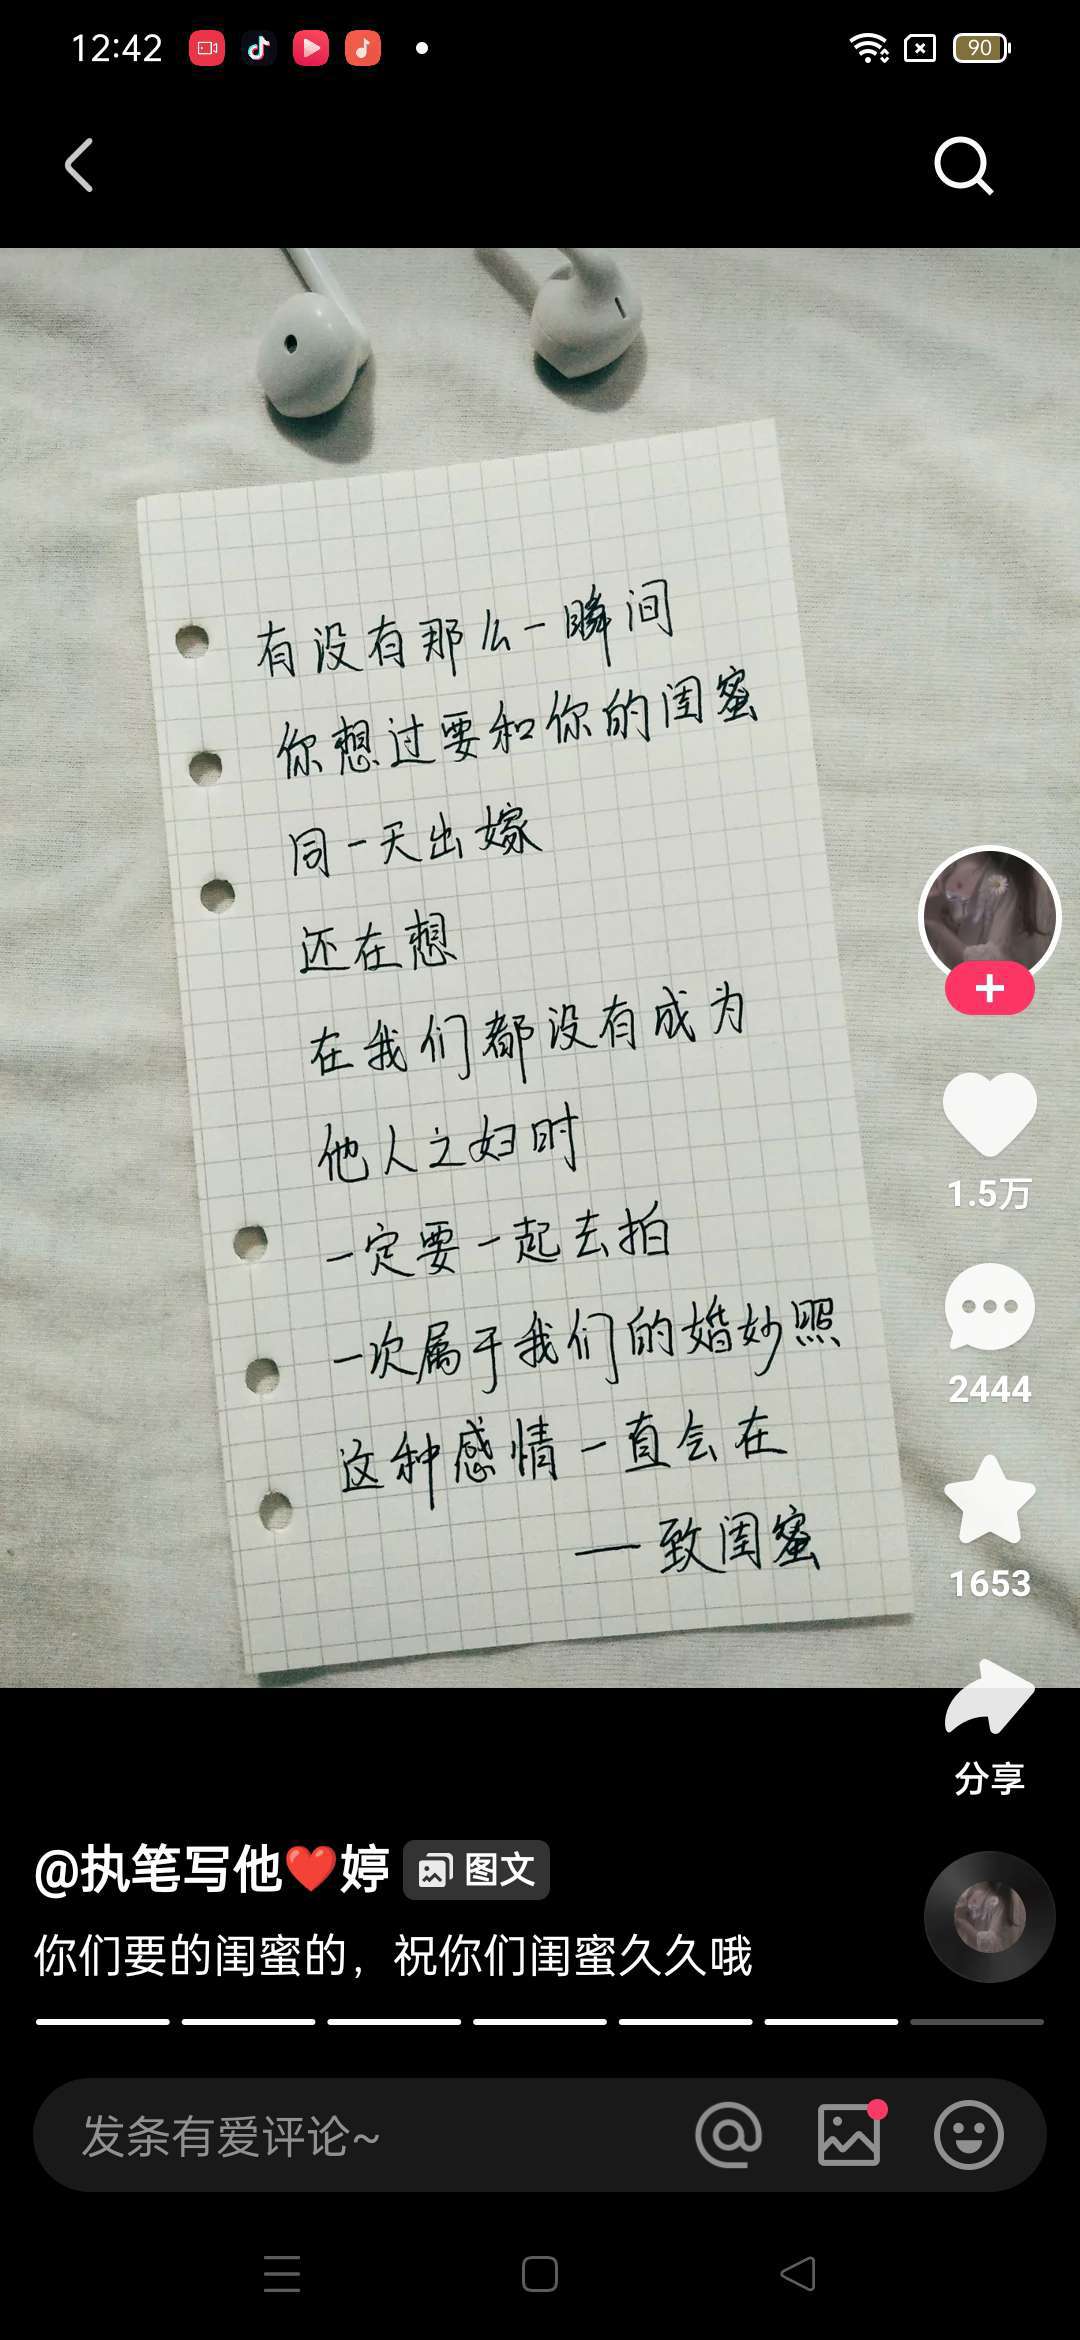 12:42
90
有没有那么一瞬间
你想过要和你的闺蜜
同一天出嫁
还在想
在我们都没有成为
他人之妇时
一定要一起去拍
一次属于我们的婚妙照
这种感情一直会在
——致闺蜜
1.5万
2444
1653
分享
@执笔写他❤️婷 图文
你们要的闺蜜的，祝你们闺蜜久久哦
发条有爱评论~